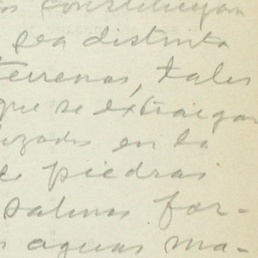 os constituyan
sea distinta
terrenos, tales
que se extraigan
lizados en la
e piedras
salinas for-
s aguas ma-